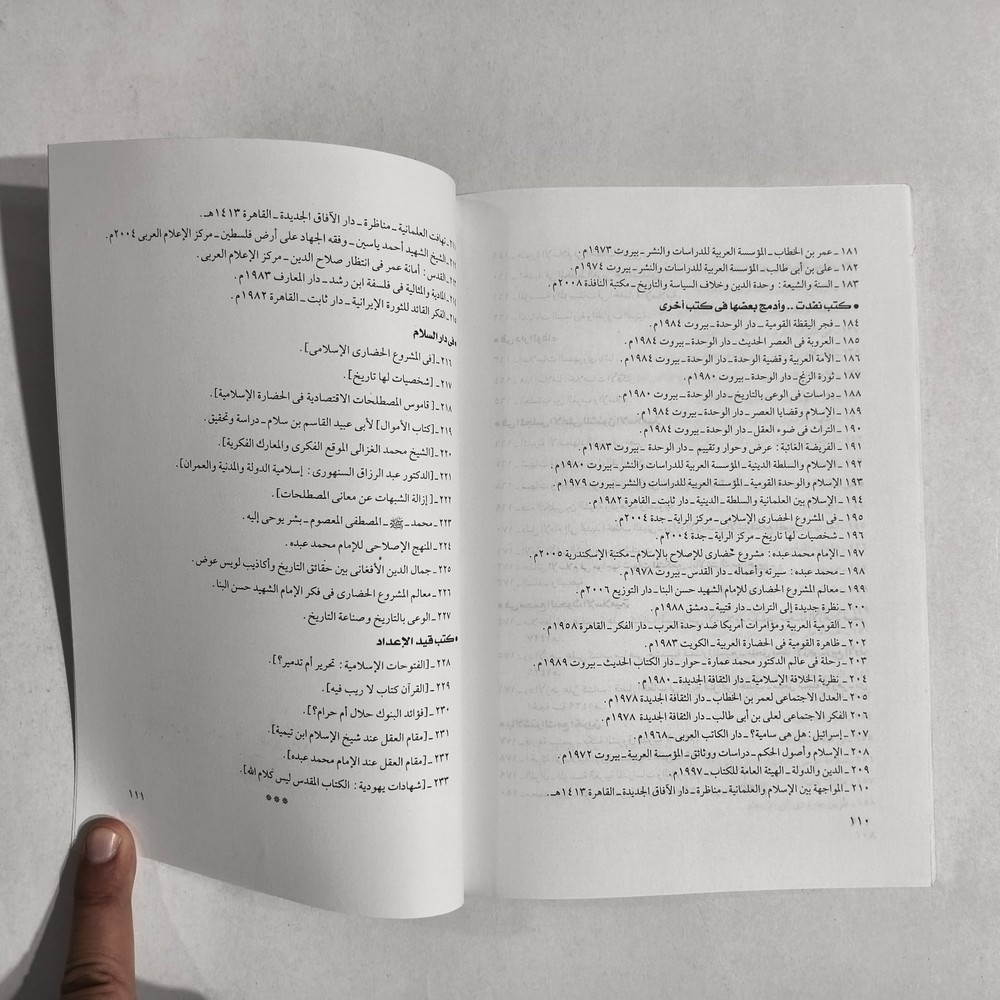 ١٨١ ـ عمر بن الخطاب ـ المؤسسة العربية للدراسات والنشر ـ بيروت ١٩٧٣م.
١٨٢ ـ على بن أبى طالب ـ المؤسسة العربية للدراسات والنشر ـ بيروت ١٩٧٤م.
١٨٣ ـ السنة والشيعة: وحدة الدين وخلاف السياسة والتاريخ ـ مكتبة النافذة ٢٠٠٨م.
• كتب نفدت .. وأدمج بعضها فى كتب أخرى
١٨٤ ـ فجر اليقظة القومية ـ دار الوحدة ـ بيروت ١٩٨٤م.
١٨٥ ـ العروبة فى العصر الحديث ـ دار الوحدة ـ بيروت ١٩٨٤م.
١٨٦ ـ الأمة العربية وقضية الوحدة ـ دار الوحدة ـ بيروت ١٩٨٤م.
١٨٧ ـ ثورة الزنج ـ دار الوحدة ـ بيروت ١٩٨٠م.
١٨٨ ـ دراسات فى الوعى بالتاريخ ـ دار الوحدة ـ بيروت ١٩٨٠م.
١٨٩ ـ الإسلام وقضايا العصر ـ دار الوحدة ـ بيروت ١٩٨٤م.
١٩٠ ـ التراث فى ضوء العقل ـ دار الوحدة ـ بيروت ١٩٨٤م.
١٩١ ـ الفريضة الغائبة: عرض وحوار وتقييم ـ دار الوحدة ـ بيروت ١٩٨٣م.
١٩٢ ـ الإسلام والسلطة الدينية ـ المؤسسة العربية للدراسات والنشر ـ بيروت ١٩٨٠م.
١٩٣ الإسلام والوحدة القومية ـ المؤسسة العربية للدراسات والنشر ـ بيروت ١٩٧٩م.
١٩٤ ـ الإسلام بين العلمانية والسلطة ـ الدينية ـ دار ثابت ـ القاهرة ١٩٨٢م.
١٩٥ ـ فى المشروع الحضارى الإسلامى ـ مركز الراية ـ جدة ٢٠٠٤م.
١٩٦ ـ شخصيات لها تاريخ ـ مركز الراية ـ جدة ٢٠٠٤م.
١٩٧ ـ الإمام محمد عبده: مشروع حضارى للإصلاح بالإسلام ـ مكتبة الإسكندرية ٢٠٠٥م.
١٩٨ ـ محمد عبده: سيرته وأعماله ـ دار القدس ـ بيروت ١٩٧٨م.
١٩٩ ـ معالم المشروع الحضارى للإمام الشهيد حسن البنا ـ دار التوزيع ٢٠٠٦م.
٢٠٠ ـ نظرة جديدة إلى التراث ـ دار قتيبة ـ دمشق ١٩٨٨م.
٢٠١ ـ القومية العربية ومؤامرات أمريكا ضد وحدة العرب ـ دار الفكر ـ القاهرة ١٩٥٨م.
٢٠٢ ـ ظاهرة القومية فى الحضارة العربية ـ الكويت ١٩٨٣م.
٢٠٣ ـ رحلة فى عالم الدكتور محمد عمارة ـ حوار ـ دار الكتاب الحديث ـ بيروت ١٩٨٩م.
٢٠٤ ـ نظرية الخلافة الإسلامية ـ دار الثقافة الجديدة ـ ١٩٨٠م.
٢٠٥ ـ العدل الاجتماعى لعمر بن الخطاب ـ دار الثقافة الجديدة ١٩٧٨م.
٢٠٦ الفكر الاجتماعى لعلى بن أبى طالب ـ دار الثقافة الجديدة ١٩٧٨م.
٢٠٧ ـ إسرائيل: هل هى سامية؟ ـ دار الكاتب العربى ـ ١٩٦٨م.
٢٠٨ ـ الإسلام وأصول الحكم ـ دراسات ووثائق ـ المؤسسة العربية ـ بيروت ١٩٧٢م.
٢٠٩ ـ الدين والدولة ـ الهيئة العامة للكتاب ـ ١٩٩٧م.
٢١٠ ـ المواجهة بين الإسلام والعلمانية ـ مناظرة ـ دار الآفاق الجديدة ـ القاهرة ١٤١٣هـ.
١١٠
تهافت العلمانية ـ مناظرة ـ دار الآفاق الجديدة ـ القاهرة ١٤١٣هـ.
الشيخ الشهيد أحمد ياسين ـ وفقه الجهاد على أرض فلسطين ـ مركز الإعلام العربى ٢٠٠٤م.
القدس: أمانة عمر فى انتظار صلاح الدين ـ مركز الإعلام العربى.
المادية والمثالية فى فلسفة ابن رشد ـ دار المعارف ١٩٨٣م.
الفكر القائد للثورة الإيرانية ـ دار ثابت ـ القاهرة ١٩٨٢م.
• فى دار السلام
٢١٦ ـ [فى المشروع الحضارى الإسلامى].
٢١٧ ـ [شخصيات لها تاريخ].
٢١٨ ـ [قاموس المصطلحات الاقتصادية فى الحضارة الإسلامية].
٢١٩ ـ [كتاب الأموال] لأبى عبيد القاسم بن سلام ـ دراسة وتحقيق.
٢٢٠ ـ [الشيخ محمد الغزالى الموقع الفكرى والمعارك الفكرية].
٢٢١ ـ [الدكتور عبد الرزاق السنهورى: إسلامية الدولة والمدنية والعمران].
٢٢٢ ـ [إزالة الشبهات عن معانى المصطلحات].
٢٢٣ ـ محمد ـ ﷺ ـ المصطفى المعصوم ـ بشر يوحى إليه.
٢٢٤ ـ المنهج الإصلاحى للإمام محمد عبده.
٢٢٥ ـ جمال الدين الأفغانى بين حقائق التاريخ وأكاذيب لويس عوض.
٢٢٦ ـ معالم المشروع الحضارى فى فكر الإمام الشهيد حسن البنا.
٢٢٧ ـ الوعى بالتاريخ وصناعة التاريخ.
• كتب قيد الإعداد
٢٢٨ ـ [الفتوحات الإسلامية: تحرير أم تدمير؟].
٢٢٩ ـ [القرآن كتاب لا ريب فيه].
٢٣٠ ـ [فوائد البنوك حلال أم حرام؟].
٢٣١ ـ [مقام العقل عند شيخ الإسلام ابن تيمية].
٢٣٢ ـ [مقام العقل عند الإمام محمد عبده].
٢٣٣ ـ [شهادات يهودية: الكتاب المقدس ليس كلام الله].
***
١١١